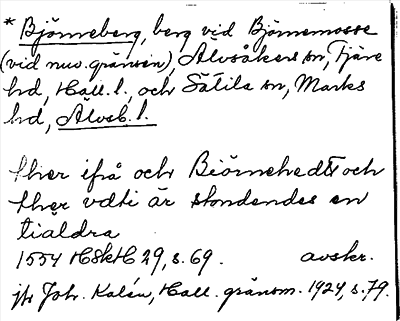 * Björneberg, berg vid Björnemosse
(vid nuv. gränsen), Älvsåkers sn, Fjäre
hd, Hall. l., och Sätila sn, Marks
hd, Älvsb. l.
ther ifrå och Biörnehedt och
ther vdti är stondendes en
tialdra
1554 HSkH 29, s. 69. avskr.
jfr Joh. Kalén, Hall. gränsm. 1924, s. 79.